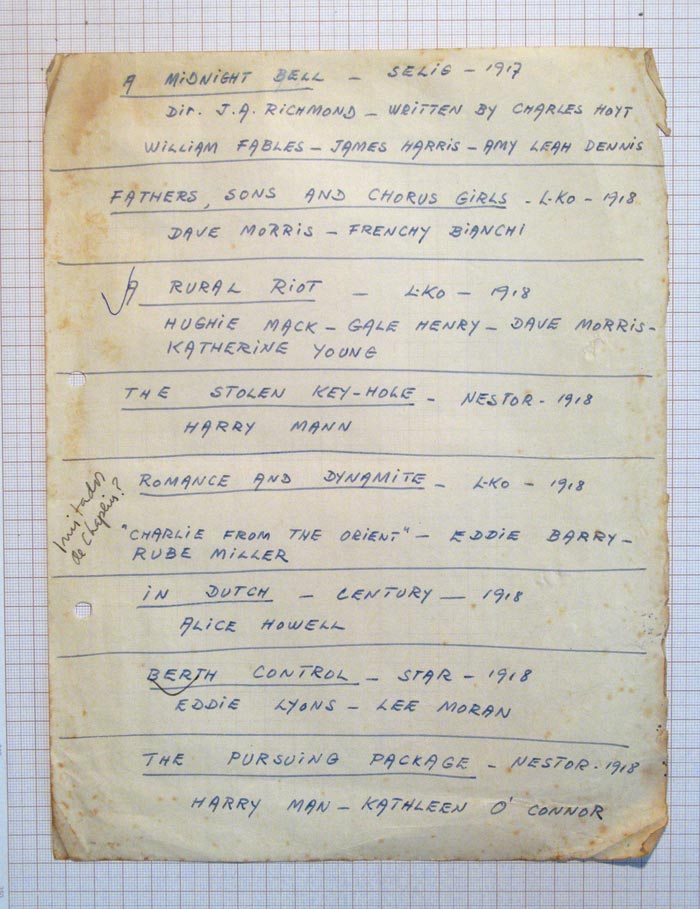 A MIDNIGHT BELL – SELIG – 1917
Dir. J.A. RICHMOND – WRITTEN BY CHARLES HOYT
WILLIAM FABLES – JAMES HARRIS – AMY LEAH DENNIS
FATHERS, SONS AND CHORUS GIRLS - L-KO - 1918
DAVE MORRIS – FRENCHY BIANCHI
A RURAL RIOT – L-KO – 1918
HUGHIE MACK – GALE HENRY – DAVE MORRIS -
KATHERINE YOUNG
THE STOLEN KEY-HOLE - NESTOR - 1918
HARRY MANN
ROMANCE AND DYNAMITE - L-KO - 1918
Imitador
de Chaplin?
"CHARLIE FROM THE ORIENT" – EDDIE BARRY –
RUBE MILLER
IN DUTCH – CENTURY – 1918
ALICE HOWELL
BERTH CONTROL – STAR – 1918
EDDIE LYONS – LEE MORAN
THE PURSUING PACKAGE - NESTOR - 1918
HARRY MAN – KATHLEEN O'CONNOR